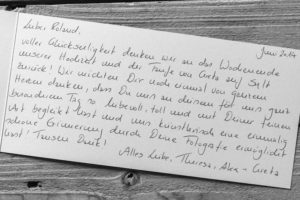 Lieber Roland,
Juni 2014
voller Glückseligkeit denken wir an das Wochenende
unserer Hochzeit und der Taufe von Greta auf Sylt
zurück! Wir möchten Dir noch einmal von ganzem
Herzen danken, dass Du uns an diesem für uns ganz
besonderen Tag so liebevoll, toll und mit Deiner feinen
Art begleitet hast und uns künstlerisch eine einmalig
schöne Erinnerung durch Deine Fotografie ermöglicht
hast! Tausend Dank!
Alles Liebe, Theresa, Alex + Greta